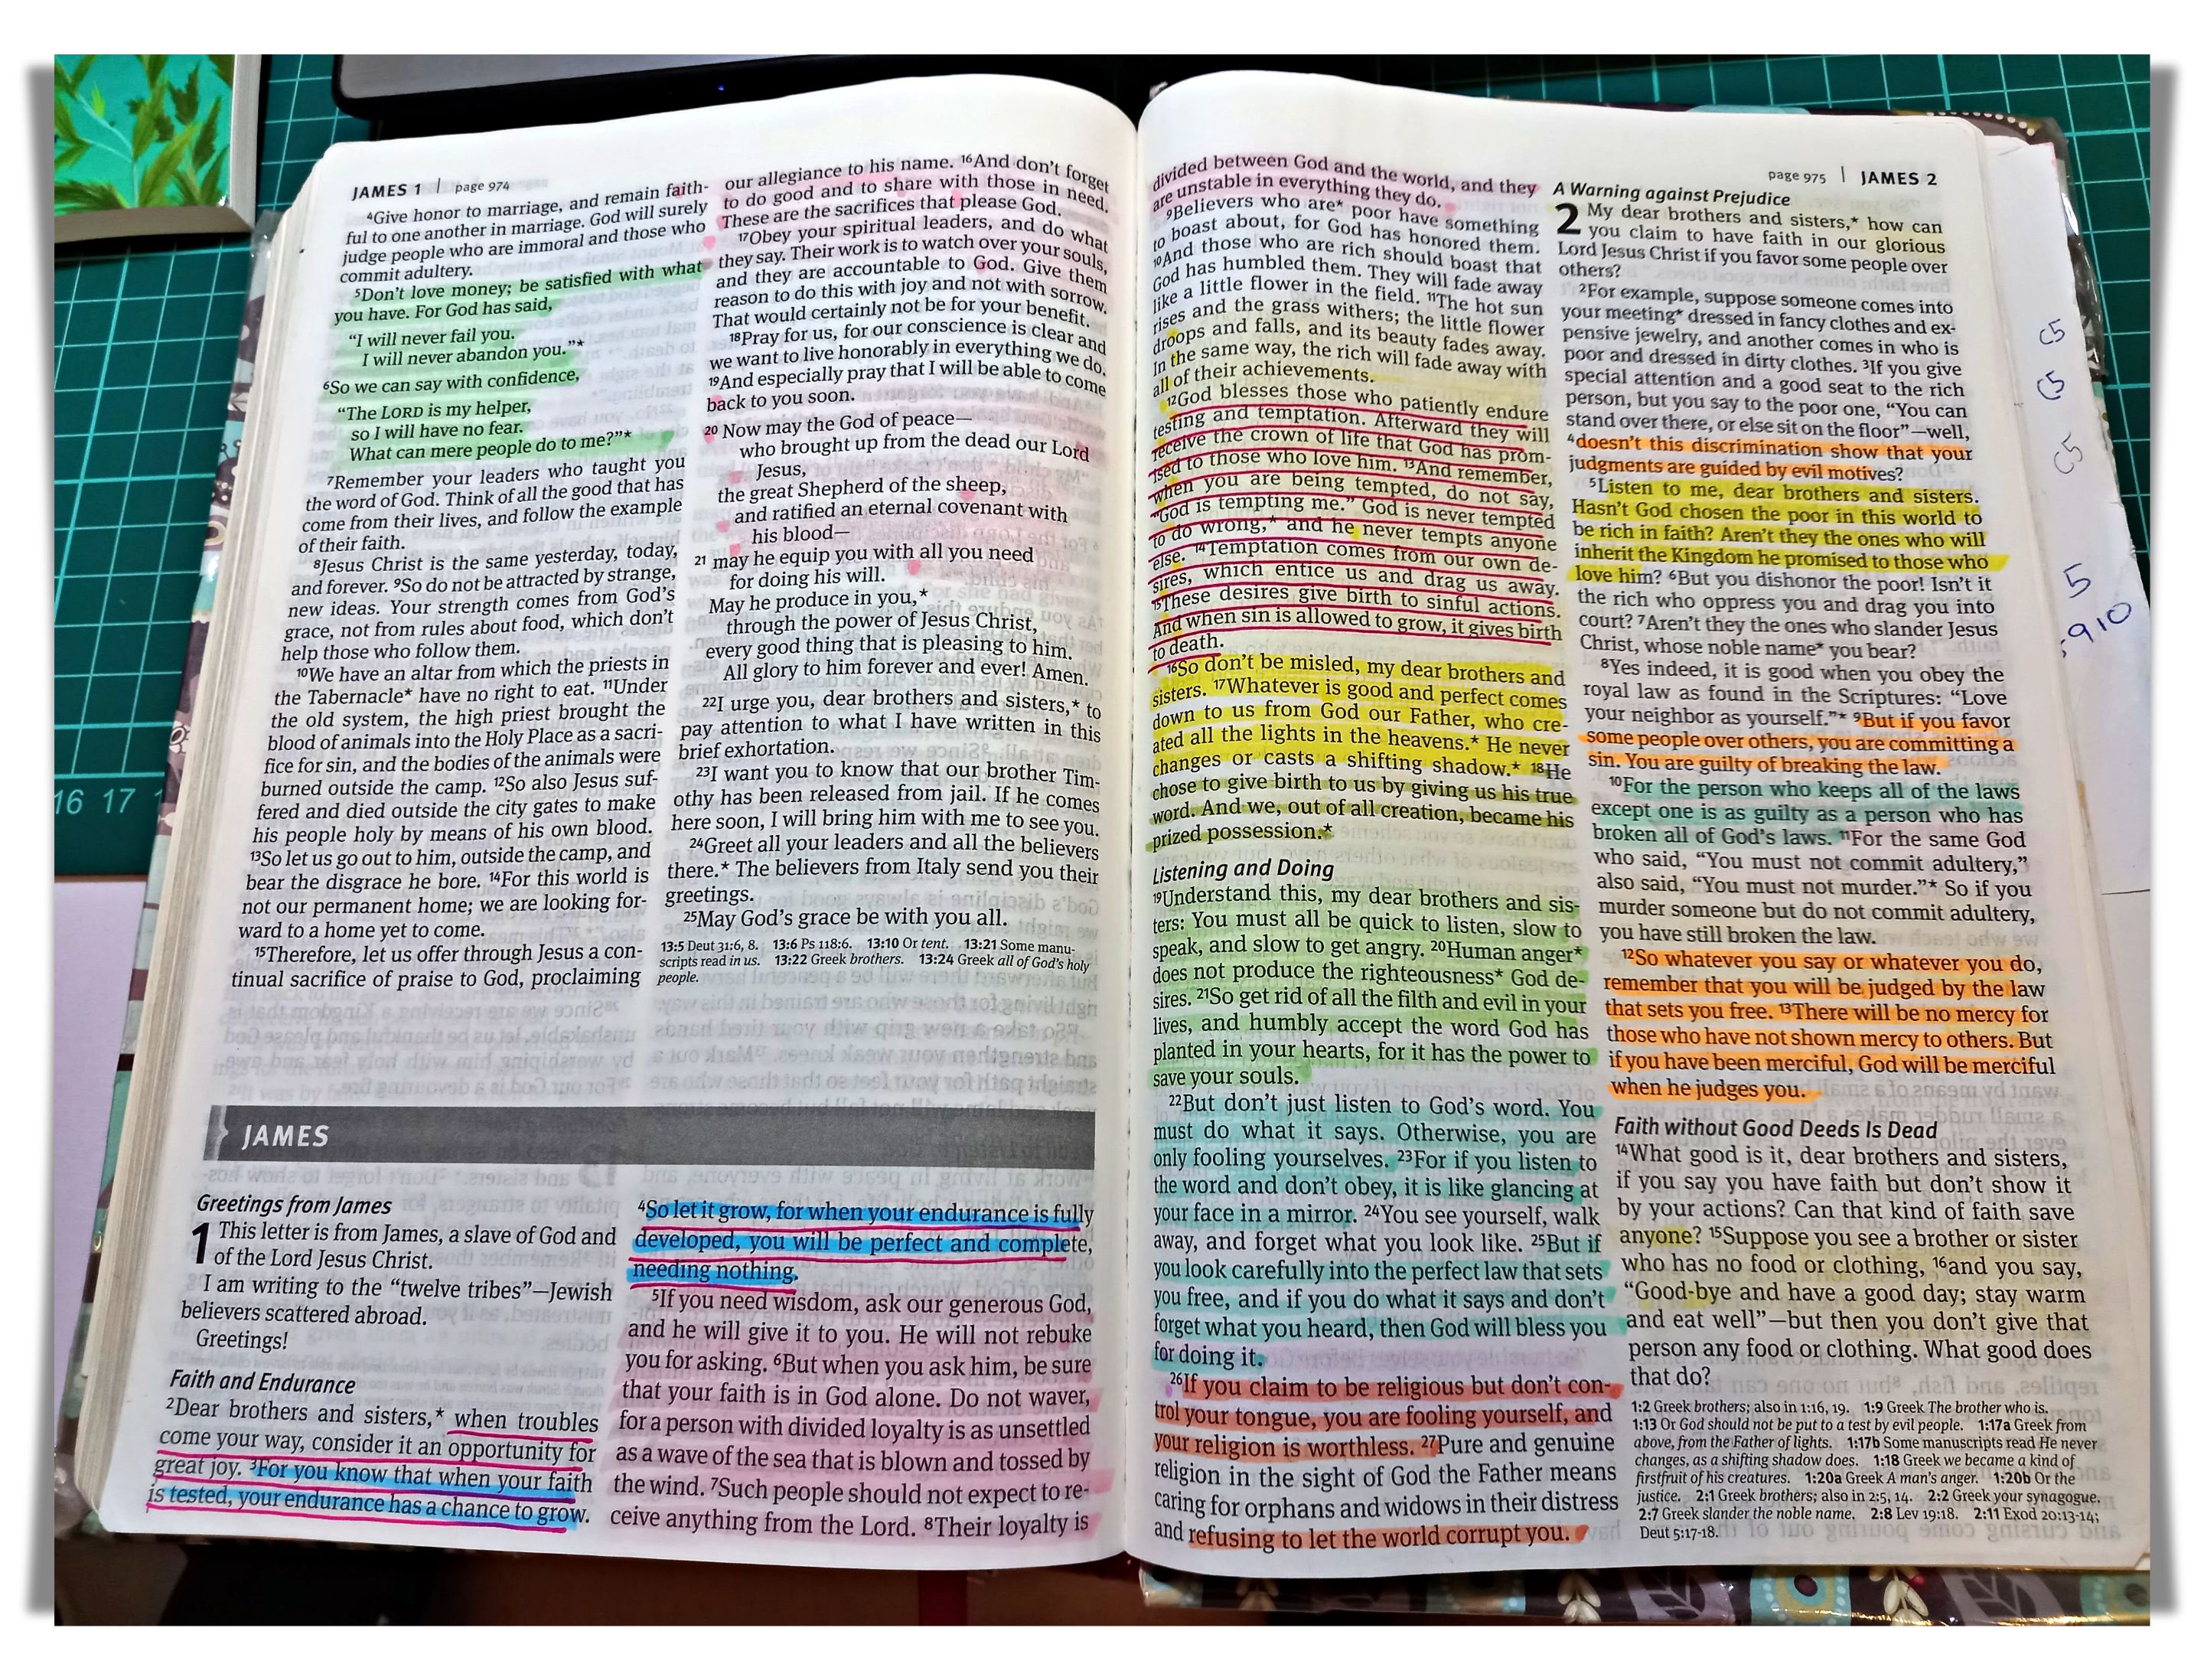 JAMES 1 | page 974
⁴Give honor to marriage, and remain faith-
ful to one another in marriage. God will surely
judge people who are immoral and those who
commit adultery.
⁵Don't love money; be satisfied with what
you have. For God has said,
"I will never fail you.
I will never abandon you."*
⁶So we can say with confidence,
"The LORD is my helper,
so I will have no fear.
What can mere people do to me?"*
⁷Remember your leaders who taught you
the word of God. Think of all the good that has
come from their lives, and follow the example
of their faith.
⁸Jesus Christ is the same yesterday, today,
and forever. ⁹So do not be attracted by strange,
new ideas. Your strength comes from God's
grace, not from rules about food, which don't
help those who follow them.
¹⁰We have an altar from which the priests in
the Tabernacle* have no right to eat. ¹¹Under
the old system, the high priest brought the
blood of animals into the Holy Place as a sacri-
fice for sin, and the bodies of the animals were
burned outside the camp. ¹²So also Jesus suf-
fered and died outside the city gates to make
his people holy by means of his own blood.
¹³So let us go out to him, outside the camp, and
bear the disgrace he bore. ¹⁴For this world is
not our permanent home; we are looking for-
ward to a home yet to come.
¹⁵Therefore, let us offer through Jesus a con-
tinual sacrifice of praise to God, proclaiming
our allegiance to his name. ¹⁶And don't forget
to do good and to share with those in need.
These are the sacrifices that please God.
¹⁷Obey your spiritual leaders, and do what
they say. Their work is to watch over your souls,
and they are accountable to God. Give them
reason to do this with joy and not with sorrow.
That would certainly not be for your benefit.
¹⁸Pray for us, for our conscience is clear and
we want to live honorably in everything we do.
¹⁹And especially pray that I will be able to come
back to you soon.
²⁰ Now may the God of peace—
who brought up from the dead our Lord
Jesus,
the great Shepherd of the sheep,
and ratified an eternal covenant with
his blood—
²¹ may he equip you with all you need
for doing his will.
May he produce in you,*
through the power of Jesus Christ,
every good thing that is pleasing to him.
All glory to him forever and ever! Amen.
²²I urge you, dear brothers and sisters,* to
pay attention to what I have written in this
brief exhortation.
²³I want you to know that our brother Tim-
othy has been released from jail. If he comes
here soon, I will bring him with me to see you.
²⁴Greet all your leaders and all the believers
there.* The believers from Italy send you their
greetings.
²⁵May God's grace be with you all.
13:5 Deut 31:6, 8. 13:6 Ps 118:6. 13:10 Or tent. 13:21 Some manu-
scripts read in us. 13:22 Greek brothers. 13:24 Greek all of God's holy
people.
16 17
JAMES
Greetings from James
1 This letter is from James, a slave of God and
of the Lord Jesus Christ.
I am writing to the "twelve tribes"—Jewish
believers scattered abroad.
Greetings!
Faith and Endurance
²Dear brothers and sisters,* when troubles
come your way, consider it an opportunity for
great joy. ³For you know that when your faith
is tested, your endurance has a chance to grow.
⁴So let it grow, for when your endurance is fully
developed, you will be perfect and complete,
needing nothing.
⁵If you need wisdom, ask our generous God,
and he will give it to you. He will not rebuke
you for asking. ⁶But when you ask him, be sure
that your faith is in God alone. Do not waver,
for a person with divided loyalty is as unsettled
as a wave of the sea that is blown and tossed by
the wind. ⁷Such people should not expect to re-
ceive anything from the Lord. ⁸Their loyalty is
divided between God and the world, and they
are unstable in everything they do.
⁹Believers who are* poor have something
to boast about, for God has honored them.
¹⁰And those who are rich should boast that
God has humbled them. They will fade away
like a little flower in the field. ¹¹The hot sun
rises and the grass withers; the little flower
droops and falls, and its beauty fades away.
In the same way, the rich will fade away with
all of their achievements.
¹²God blesses those who patiently endure
testing and temptation. Afterward they will
receive the crown of life that God has prom-
ised to those who love him. ¹³And remember,
when you are being tempted, do not say,
"God is tempting me." God is never tempted
to do wrong,* and he never tempts anyone
else. ¹⁴Temptation comes from our own de-
sires, which entice us and drag us away.
¹⁵These desires give birth to sinful actions.
And when sin is allowed to grow, it gives birth
to death.
¹⁶So don't be misled, my dear brothers and
sisters. ¹⁷Whatever is good and perfect comes
down to us from God our Father, who cre-
ated all the lights in the heavens.* He never
changes or casts a shifting shadow.* ¹⁸He
chose to give birth to us by giving us his true
word. And we, out of all creation, became his
prized possession.*
Listening and Doing
¹⁹Understand this, my dear brothers and sis-
ters: You must all be quick to listen, slow to
speak, and slow to get angry. ²⁰Human anger*
does not produce the righteousness* God de-
sires. ²¹So get rid of all the filth and evil in your
lives, and humbly accept the word God has
planted in your hearts, for it has the power to
save your souls.
²²But don't just listen to God's word. You
must do what it says. Otherwise, you are
only fooling yourselves. ²³For if you listen to
the word and don't obey, it is like glancing at
your face in a mirror. ²⁴You see yourself, walk
away, and forget what you look like. ²⁵But if
you look carefully into the perfect law that sets
you free, and if you do what it says and don't
forget what you heard, then God will bless you
for doing it.
²⁶If you claim to be religious but don't con-
trol your tongue, you are fooling yourself, and
your religion is worthless. ²⁷Pure and genuine
religion in the sight of God the Father means
caring for orphans and widows in their distress
and refusing to let the world corrupt you.
page 975 | JAMES 2
A Warning against Prejudice
2 My dear brothers and sisters,* how can
you claim to have faith in our glorious
Lord Jesus Christ if you favor some people over
others?
²For example, suppose someone comes into
your meeting* dressed in fancy clothes and ex-
pensive jewelry, and another comes in who is
poor and dressed in dirty clothes. ³If you give
special attention and a good seat to the rich
person, but you say to the poor one, "You can
stand over there, or else sit on the floor"—well,
⁴doesn't this discrimination show that your
judgments are guided by evil motives?
⁵Listen to me, dear brothers and sisters.
Hasn't God chosen the poor in this world to
be rich in faith? Aren't they the ones who will
inherit the Kingdom he promised to those who
love him? ⁶But you dishonor the poor! Isn't it
the rich who oppress you and drag you into
court? ⁷Aren't they the ones who slander Jesus
Christ, whose noble name* you bear?
⁸Yes indeed, it is good when you obey the
royal law as found in the Scriptures: "Love
your neighbor as yourself."* ⁹But if you favor
some people over others, you are committing a
sin. You are guilty of breaking the law.
¹⁰For the person who keeps all of the laws
except one is as guilty as a person who has
broken all of God's laws. ¹¹For the same God
who said, "You must not commit adultery,"
also said, "You must not murder."* So if you
murder someone but do not commit adultery,
you have still broken the law.
¹²So whatever you say or whatever you do,
remember that you will be judged by the law
that sets you free. ¹³There will be no mercy for
those who have not shown mercy to others. But
if you have been merciful, God will be merciful
when he judges you.
Faith without Good Deeds Is Dead
¹⁴What good is it, dear brothers and sisters,
if you say you have faith but don't show it
by your actions? Can that kind of faith save
anyone? ¹⁵Suppose you see a brother or sister
who has no food or clothing, ¹⁶and you say,
"Good-bye and have a good day; stay warm
and eat well"—but then you don't give that
person any food or clothing. What good does
that do?
1:2 Greek brothers; also in 1:16, 19. 1:9 Greek The brother who is.
1:13 Or God should not be put to a test by evil people. 1:17a Greek from
above, from the Father of lights. 1:17b Some manuscripts read He never
changes, as a shifting shadow does. 1:18 Greek we became a kind of
firstfruit of his creatures. 1:20a Greek A man's anger. 1:20b Or the
justice. 2:1 Greek brothers; also in 2:5, 14. 2:2 Greek your synagogue.
2:7 Greek slander the noble name. 2:8 Lev 19:18. 2:11 Exod 20:13-14;
Deut 5:17-18.
C5
C5
C5
5
:910